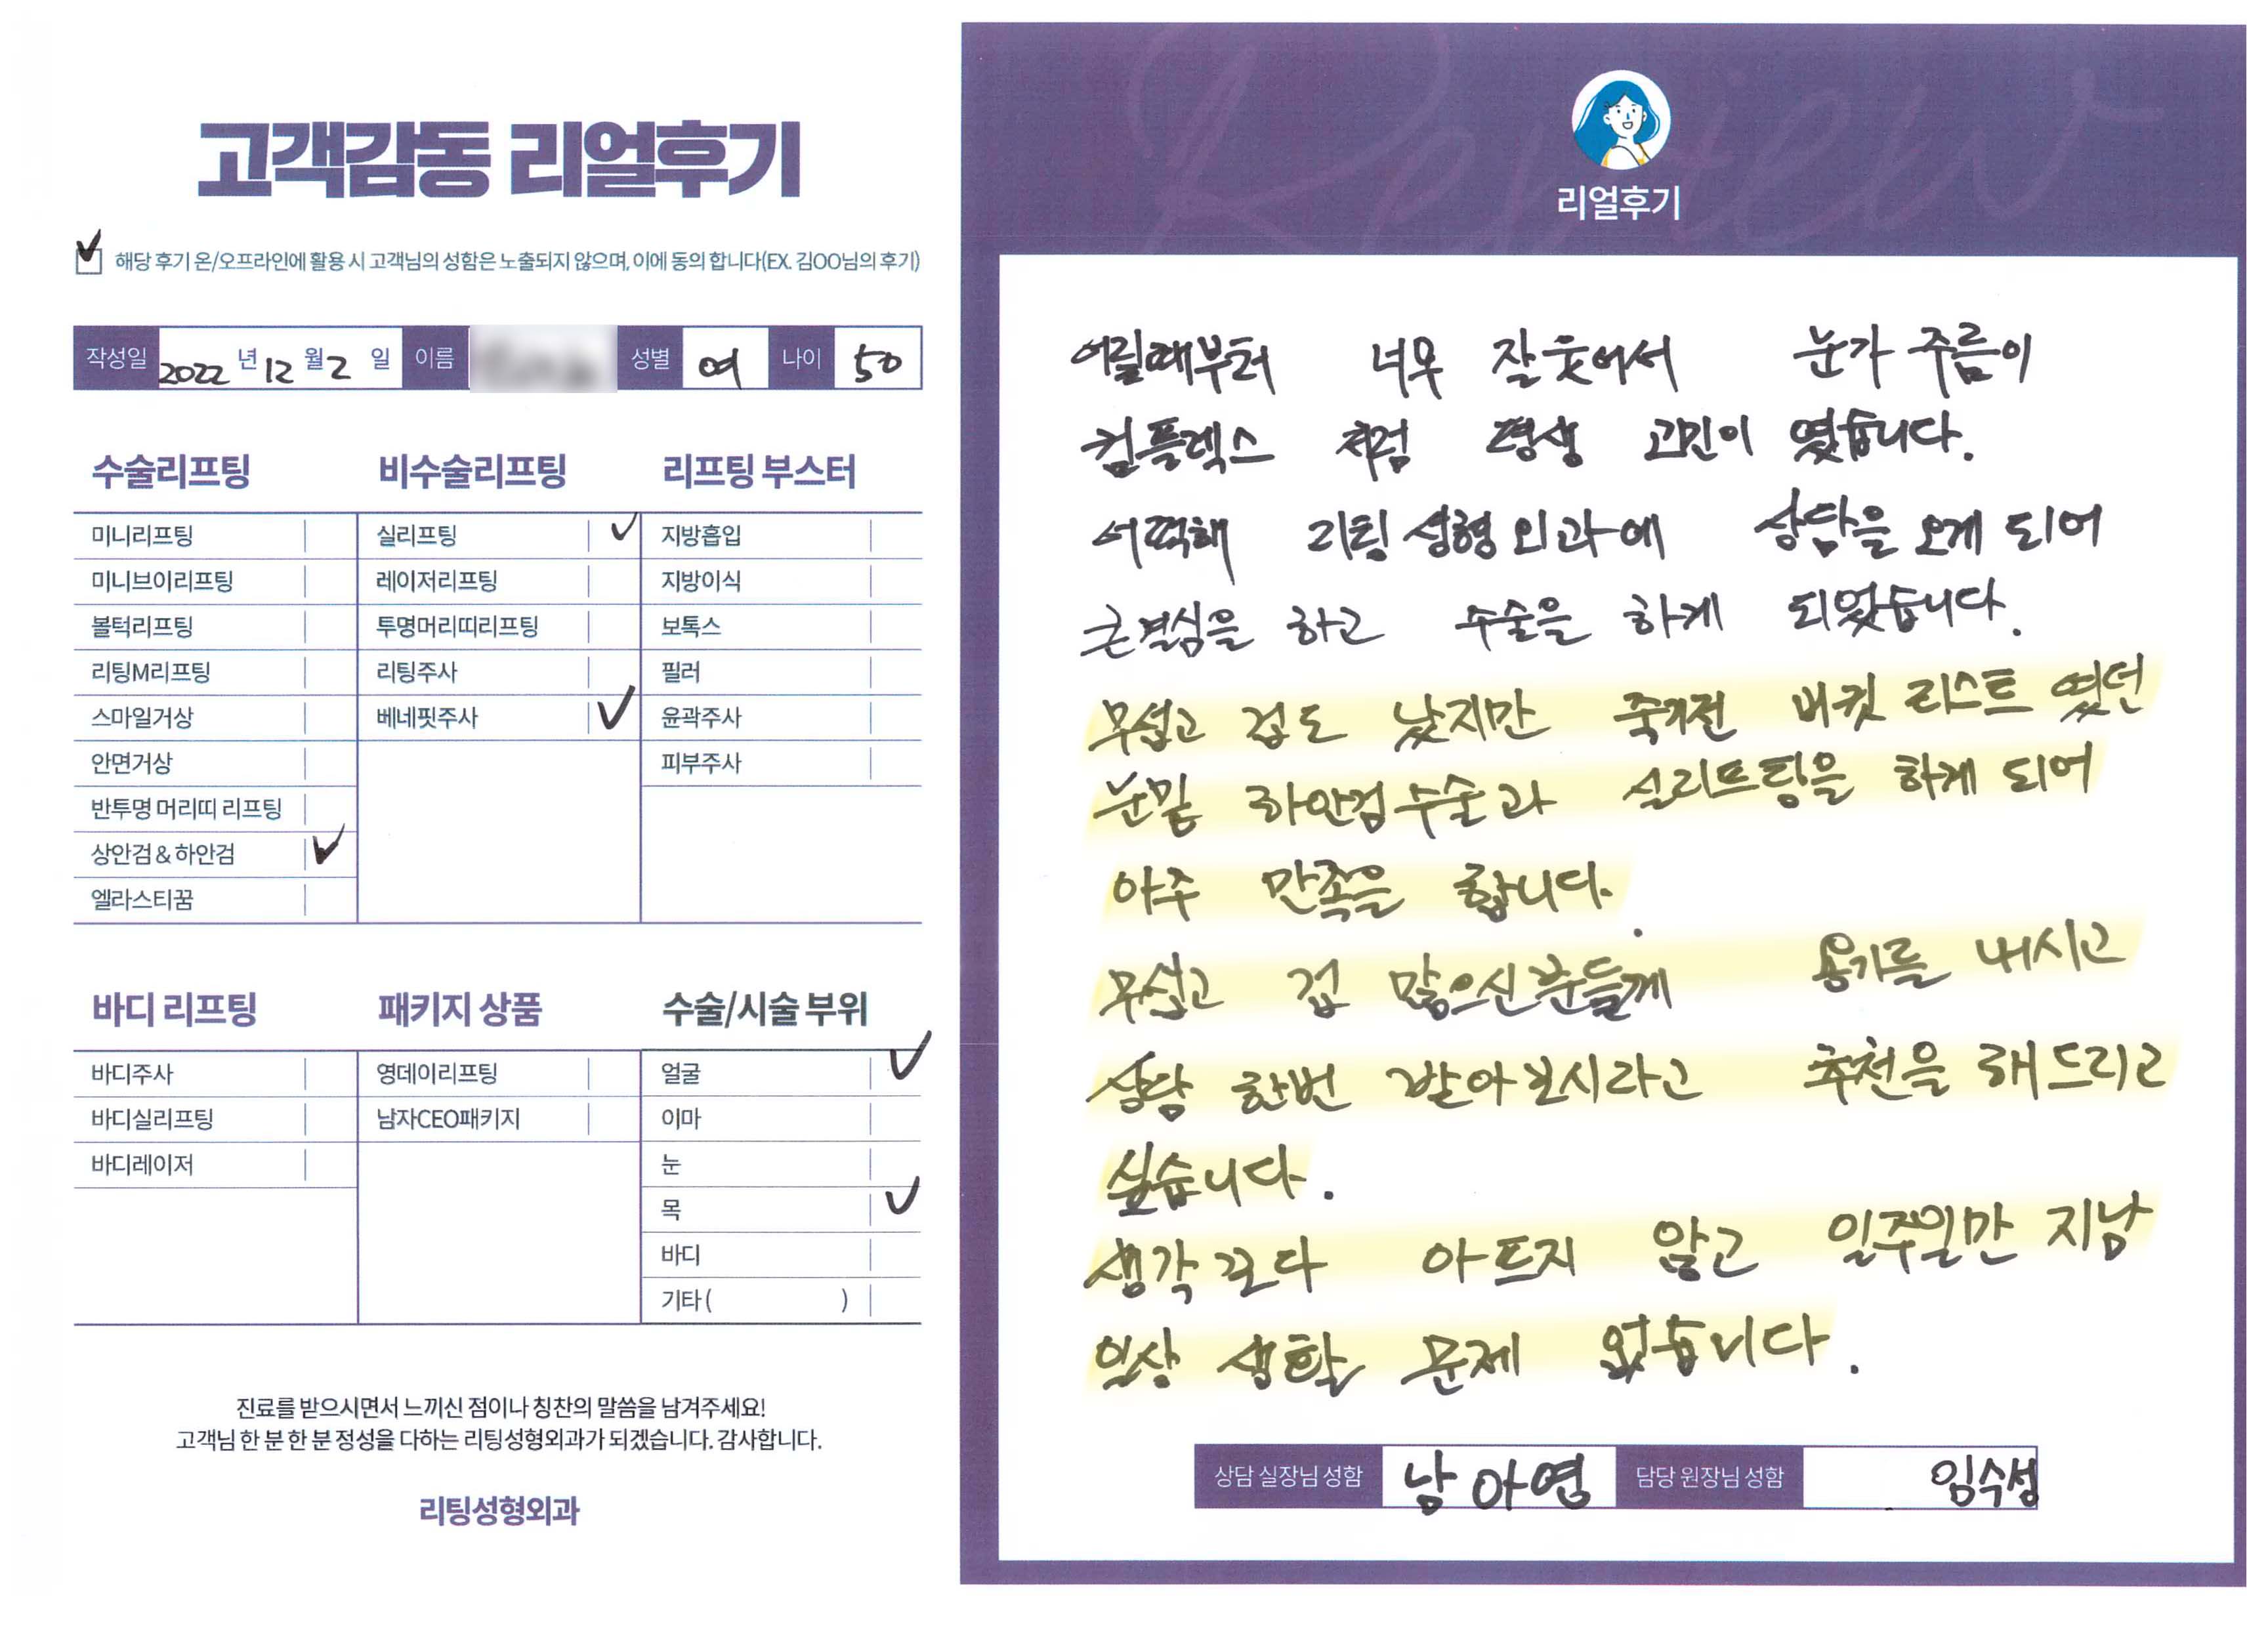 고객감동 리얼후기
해당 후기 온/오프라인에 활용 시 고객님의 성함은 노출되지 않으며, 이에 동의 합니다(EX. 김OO님의 후기)
작성일 2022 년 12 월 2 일 이름 성별 여 나이 50
수술리프팅
미니리프팅
미니브이리프팅
볼턱리프팅
리팅M리프팅
스마일거상
안면거상
반투명 머리띠 리프팅
상안검 & 하안검
엘라스티꿈
비수술리프팅
실리프팅
레이저리프팅
투명머리띠리프팅
리팅주사
베네핏주사
리프팅 부스터
지방흡입
지방이식
보톡스
필러
윤곽주사
피부주사
바디 리프팅
바디주사
바디실리프팅
바디레이저
패키지 상품
영데이리프팅
남자CEO패키지
수술/시술 부위
얼굴
이마
눈
목
바디
기타 ( )
진료를 받으시면서 느끼신 점이나 칭찬의 말씀을 남겨주세요!
고객님 한 분 한 분 정성을 다하는 리팅성형외과가 되겠습니다. 감사합니다.
리팅성형외과
Review
리얼후기
어릴때부터 너무 잘 웃어서 눈가 주름이
컴플렉스 처럼 평생 고민이 였습니다.
어떡해 리팅성형외과에 상담을 오게 되어
큰결심을 하고 수술을 하게 되었습니다.
무섭고 겁도 났지만 죽기전 버킷 리스트 였던
눈밑 하안검수술과 실리프팅을 하게 되어
아주 만족을 합니다.
무섭고 겁 많으신분들께 용기를 내시고
상담 한번 받아보시라고 추천을 해드리고
싶습니다.
생각보다 아프지 않고 일주일만 지남
일상 생활 문제 없습니다.
상담 실장님 성함 남아영 담당 원장님 성함 임수성